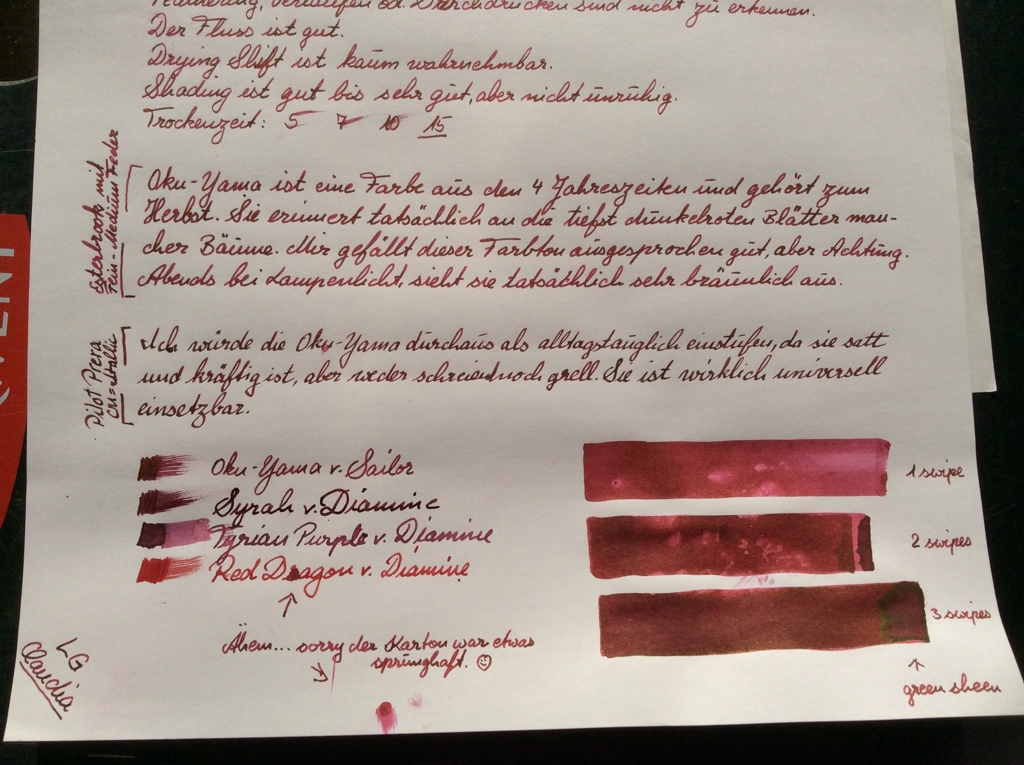 Federung, Verlaufen od. Durchdrücken sind nicht zu erkennen.
Der Fluss ist gut.
Drying Shift ist kaum wahrnehmbar.
Shading ist gut bis sehr gut, aber nicht unruhig.
Trockenzeit: 5 7 10 15
Esterbrook mit
Fein-Medium Feder
Oku-Yama ist eine Farbe aus den 4 Jahreszeiten und gehört zum
Herbst. Sie erinnert tatsächlich an die tiefst dunkelroten Blätter man-
cher Bäume. Mir gefällt dieser Farbton ausgesprochen gut, aber Achtung.
Abends bei Lampenlicht, sieht sie tatsächlich sehr bräunlich aus.
Pilot Prera
CM = Italic
Ich würde die Oku-Yama durchaus als alltagstauglich einstufen, da sie satt
und kräftig ist, aber weder schreiend noch grell. Sie ist wirklich universell
einsetzbar.
Oku-Yama v. Sailor
Syrah v. Diamine
Tyrian Purple v. Diamine
Red Dragon v. Diamine
Ähem... sorry der Karton war etwas
sprunghaft.
1 swipe
2 swipes
3 swipes
green sheen
LG
Claudia